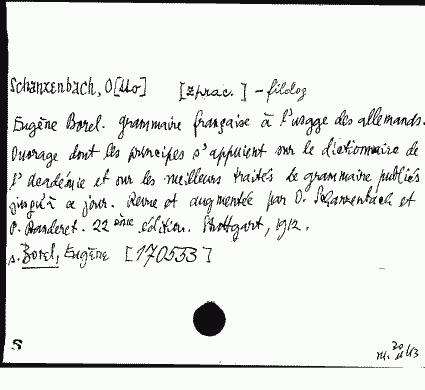 Schanzenbach, O[tto] [zprac.] - filolog
Eugène Borel. Grammaire française à l'usage des allemands.
Ouvrage dont les principes s'appuient sur le dictionnaire de
l'Académie et sur les meilleurs traités de grammaire publiés
jusqu'à ce jour. Revue et augmentée par O. Schanzenbach et
P. Banderet. 22ième édition. Stuttgart, 1912.
s. Borel, Eugène [170553]
S